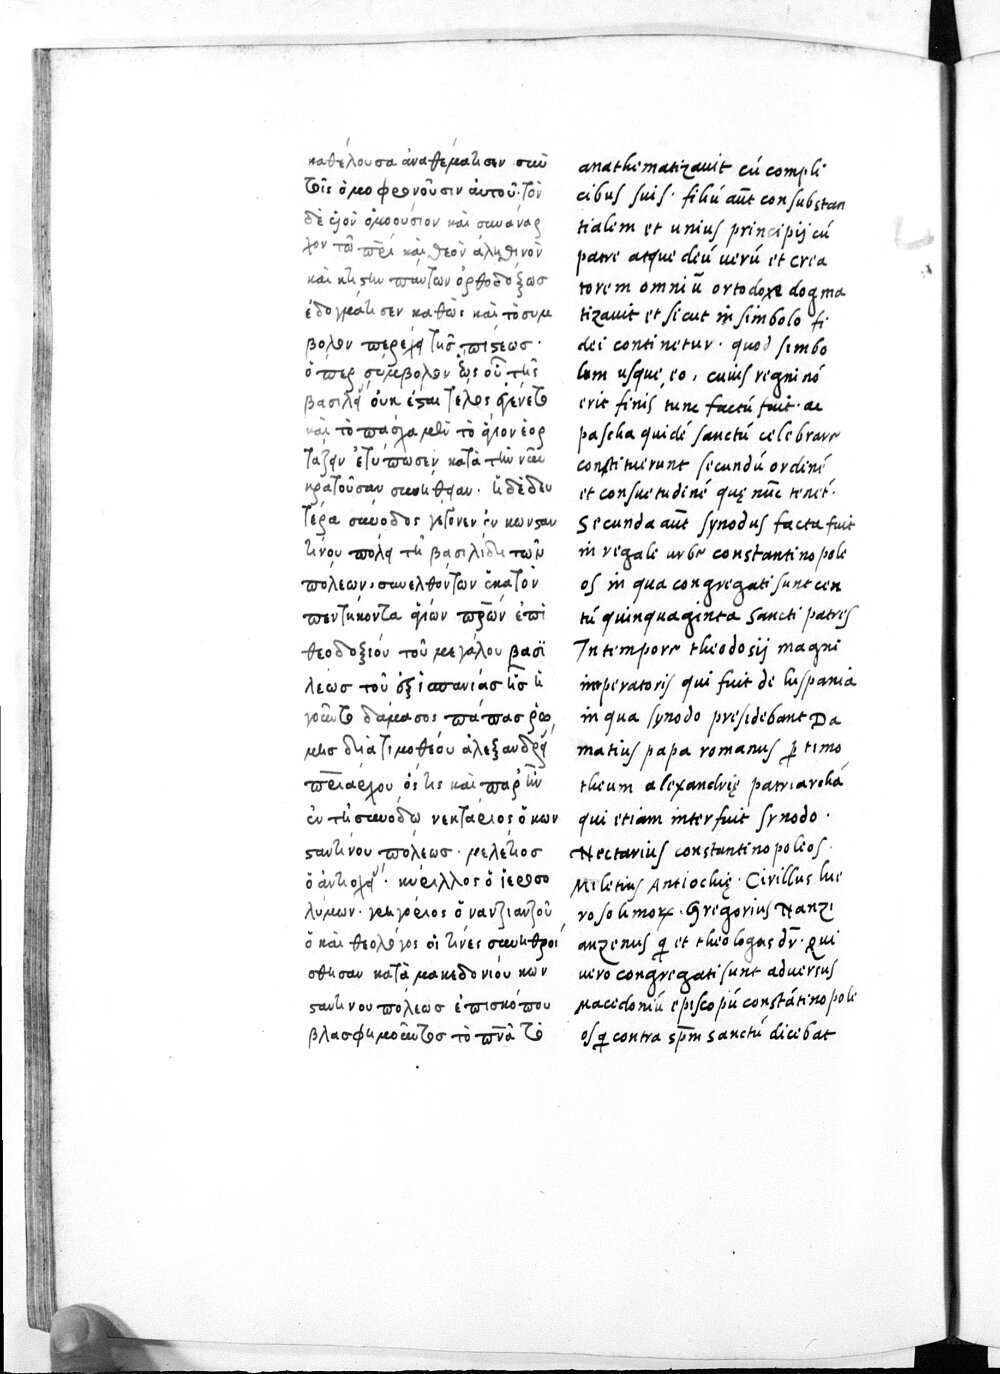 καθέλουσα ἀναθεμάτισεν σὺν
τοῖς ὁμοφρονοῦσιν αὐτοῦ· τὸν
δὲ υἱὸν ὁμοούσιον καὶ συνάναρ
χον τῶ πρι καὶ θεὸν ἀληθινὸν
καὶ κτίστην πάντων ὀρθοδόξως
ἐδογμάτισεν καθὼς καὶ τὸ συμ
βολον περιέχει τῆς πίστεως·
ὅπερ σύμβολον ἕως οὗ τῆς
βασιλεί οὐκ ἔσται τέλος ἐγένετο
καὶ τὸ πάσχα μὲν τὸ ἅγιον ἑορ
τάζειν ἐτύπωσεν κατὰ τὴν νῦν
κρατοῦσαν συνήθειαν· ἡ δὲ δευ
τέρα σύνοδος γέγονεν ἐν κωνσταν
τίνου πόλει τῆ βασιλίδι τῶν
πόλεων, συνελθόντων ἑκατὸν
πεντήκοντα ἁγίων πρων ἐπὶ
θεοδοσίου τοῦ μεγάλου βασι
λέως τοῦ ἐξ ἱσπανίας ἧς ἡ
γοῦντο δάμασος πάπας ῥώ
μης διὰ τιμοθέου ἀλεξανδρεί
πριάρχου ὅς τις καὶ παρῆν
ἐν τῆ συνόδω νεκτάριος ὁ κων
σταντίνου πόλεως· μελέτιος
ὁ ἀντιοχεί· κύριλλος ὁ ἱεροσο
λύμων· γρηγόριος ὁ νανζιανζοῦ
ὁ καὶ θεολόγος οἵ τινες συνηθροί
σθησαν κατὰ μακεδονίου κων
σταντίνου πόλεως ἐπισκόπου
βλασφημοῦντος τὸ πνα τὸ
anathematizauit cú compli
cibus suis· filiú aũt consubstan
tialem et unius principij cú
patre atque deú uerú et crea
torem omniũ ortodoxe dogma
tizauit et sicut in simbolo fi
dei continetur· quod simbo
lum usque, eo, cuius regni nó
erit finis, tunc factú fuit· ac
pascha quidé sanctú celebrare
constituerunt secundú ordiné
et consuetudiné quę nũc tenét·
Secunda aũt synodus facta fuit
in regale urbe constantinopole
os in qua congregati sunt cen
tú quinquaginta sancti patres
In tempore theodosij magni
imperatoris qui fuit de hispania
in qua synodo presidebant Da
matius papa romanus ꝑ timo
theum alexandrię patriarchá
qui etiam interfuit synodo·
Nectarius constantinopoleos·
Miletius Antiochię· Cirillus hie
rosolimoꝝ· Gregorius Nanzi
anzenus ꝗ et theologus dr̃· qui
uero congregati sunt aduersus
Macedoniú episcopú constátinopole
os ꝗ contra sp̃m sanctú dicebat